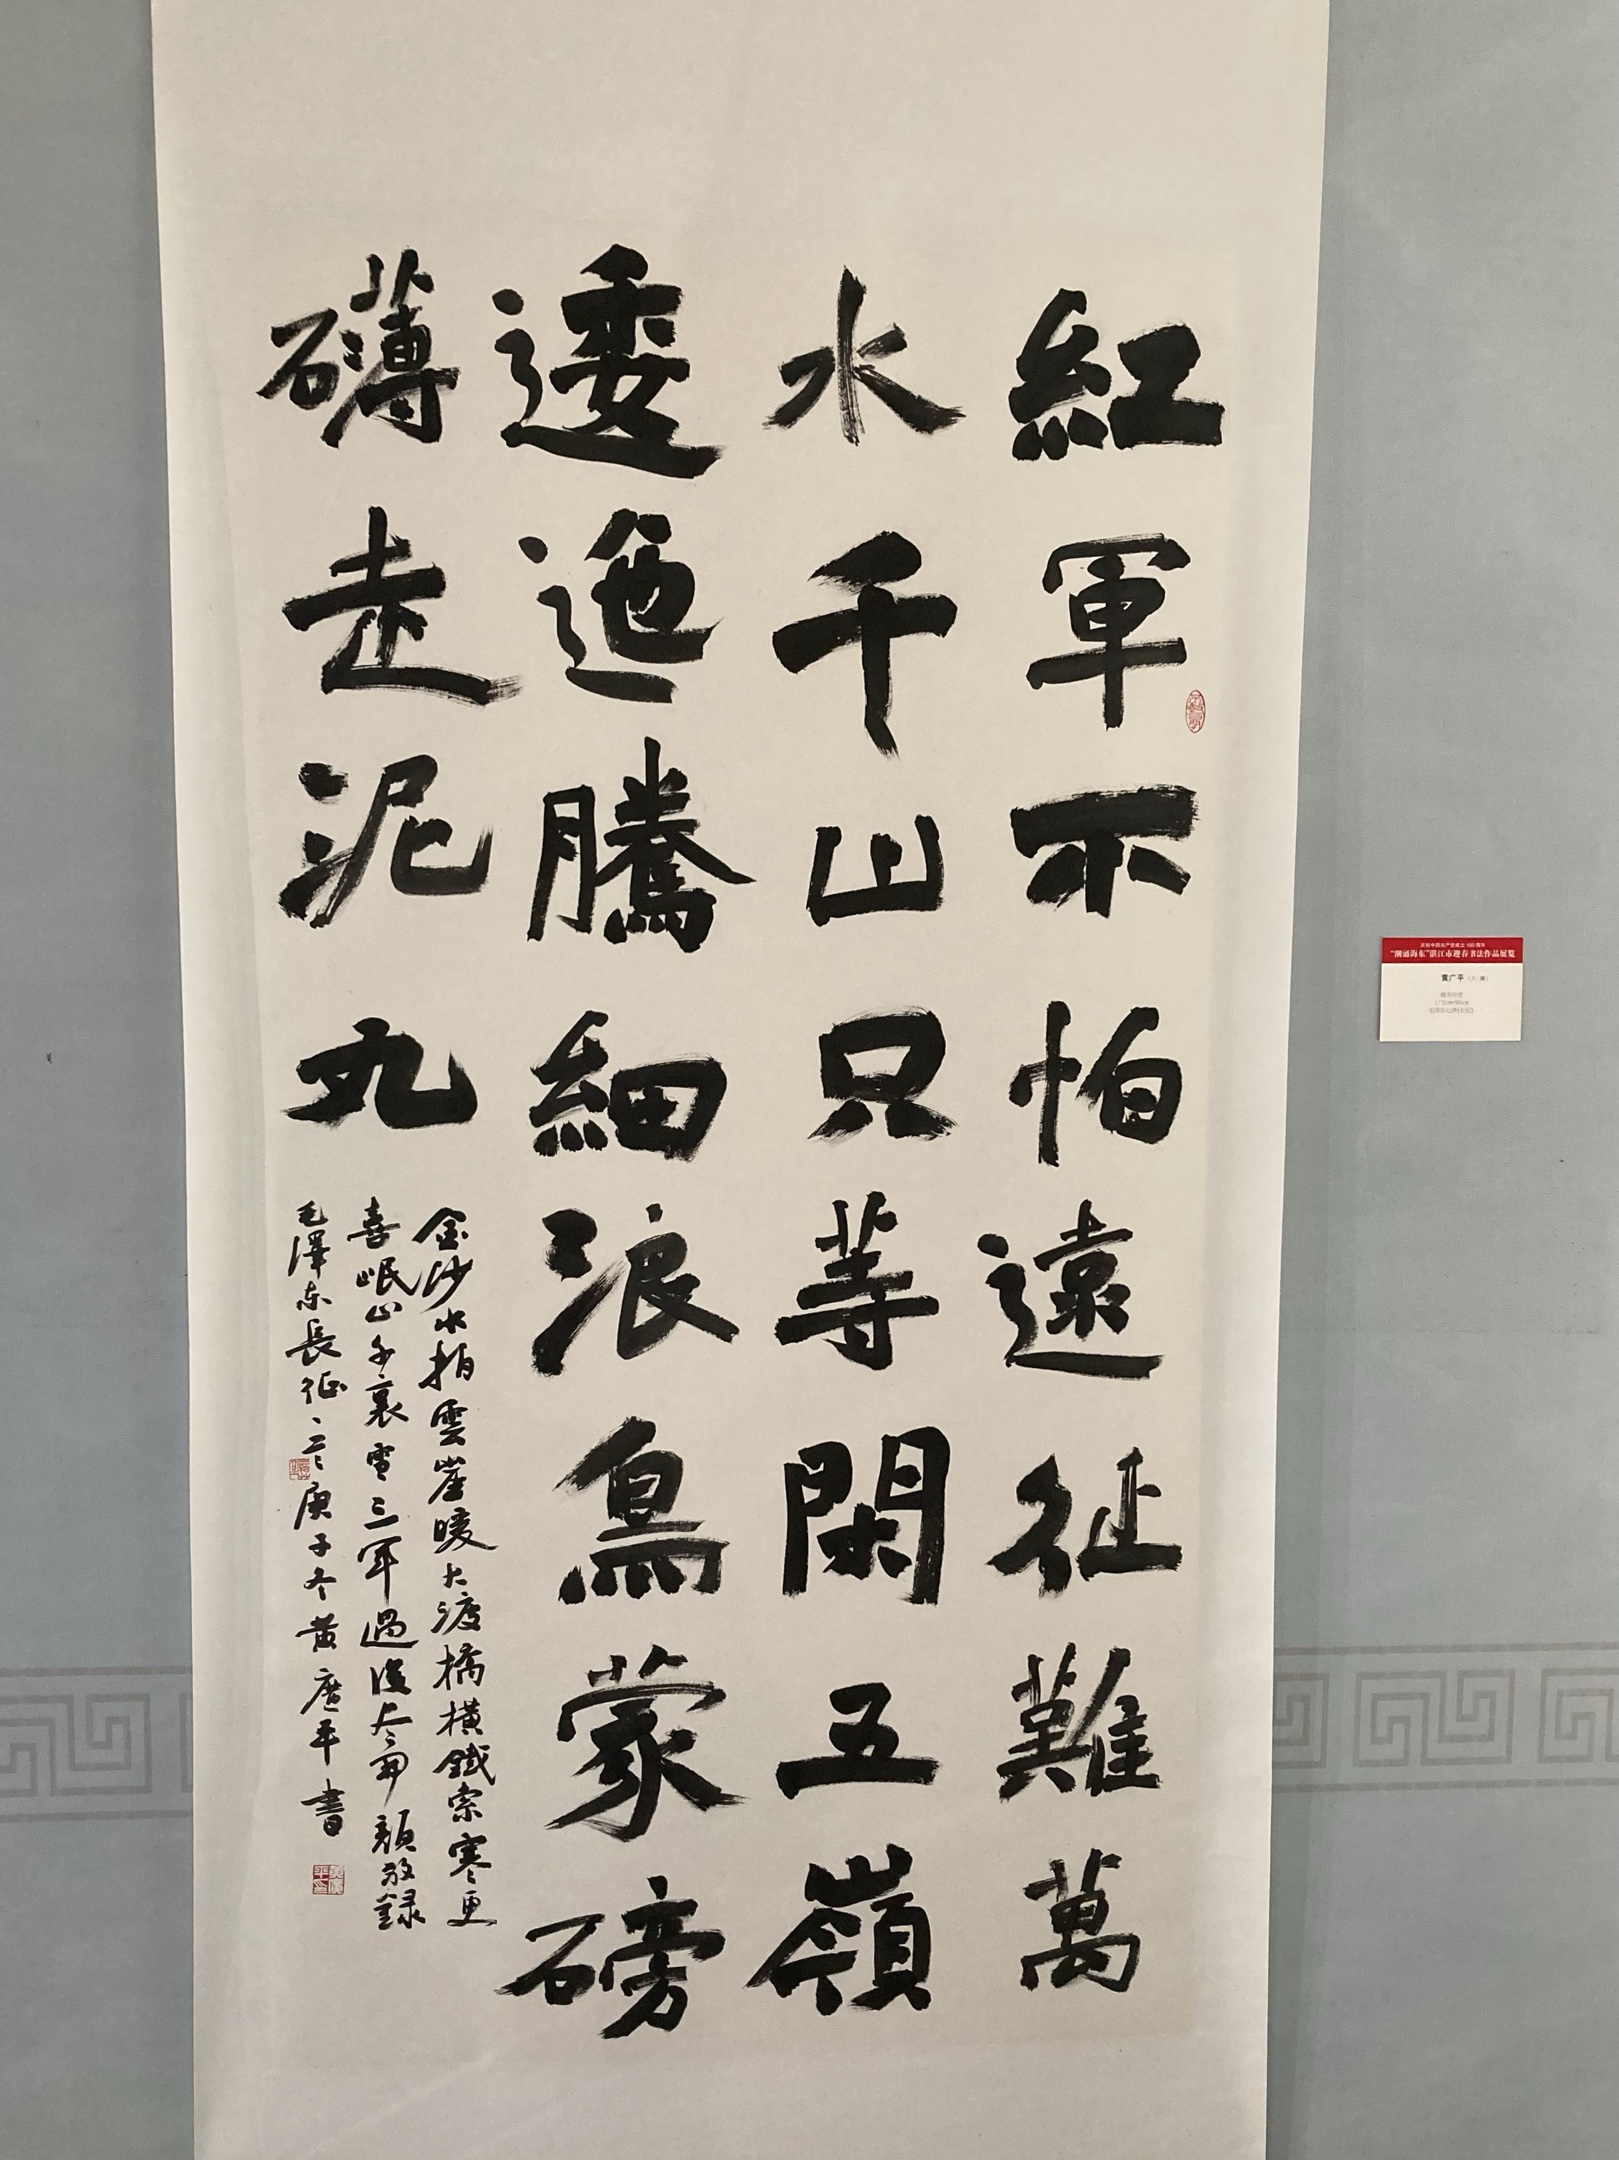 紅軍不怕遠征難萬
水千山只等閑五嶺
逶迤騰細浪烏蒙磅
礴走泥丸
金沙水拍雲崖暖大渡橋橫鐵索寒更
喜岷山千裏雪三軍過後尽開顏敬録
毛澤东長征庚子冬黄廣平書
庆祝中国共产党成立100周年
黄广平